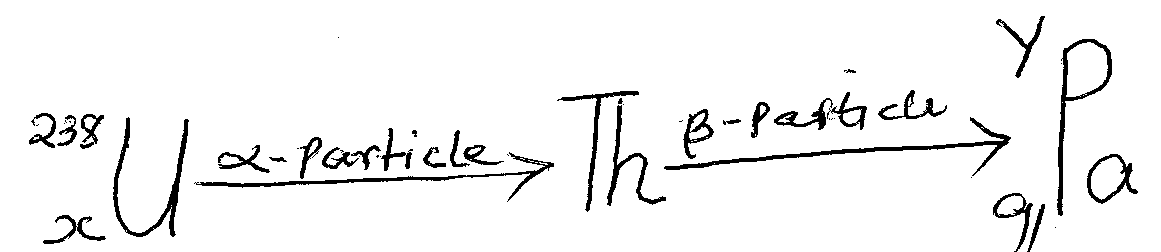 ²³⁸ₓU α-particle → Th β-particle → ʸ₉₁Pa